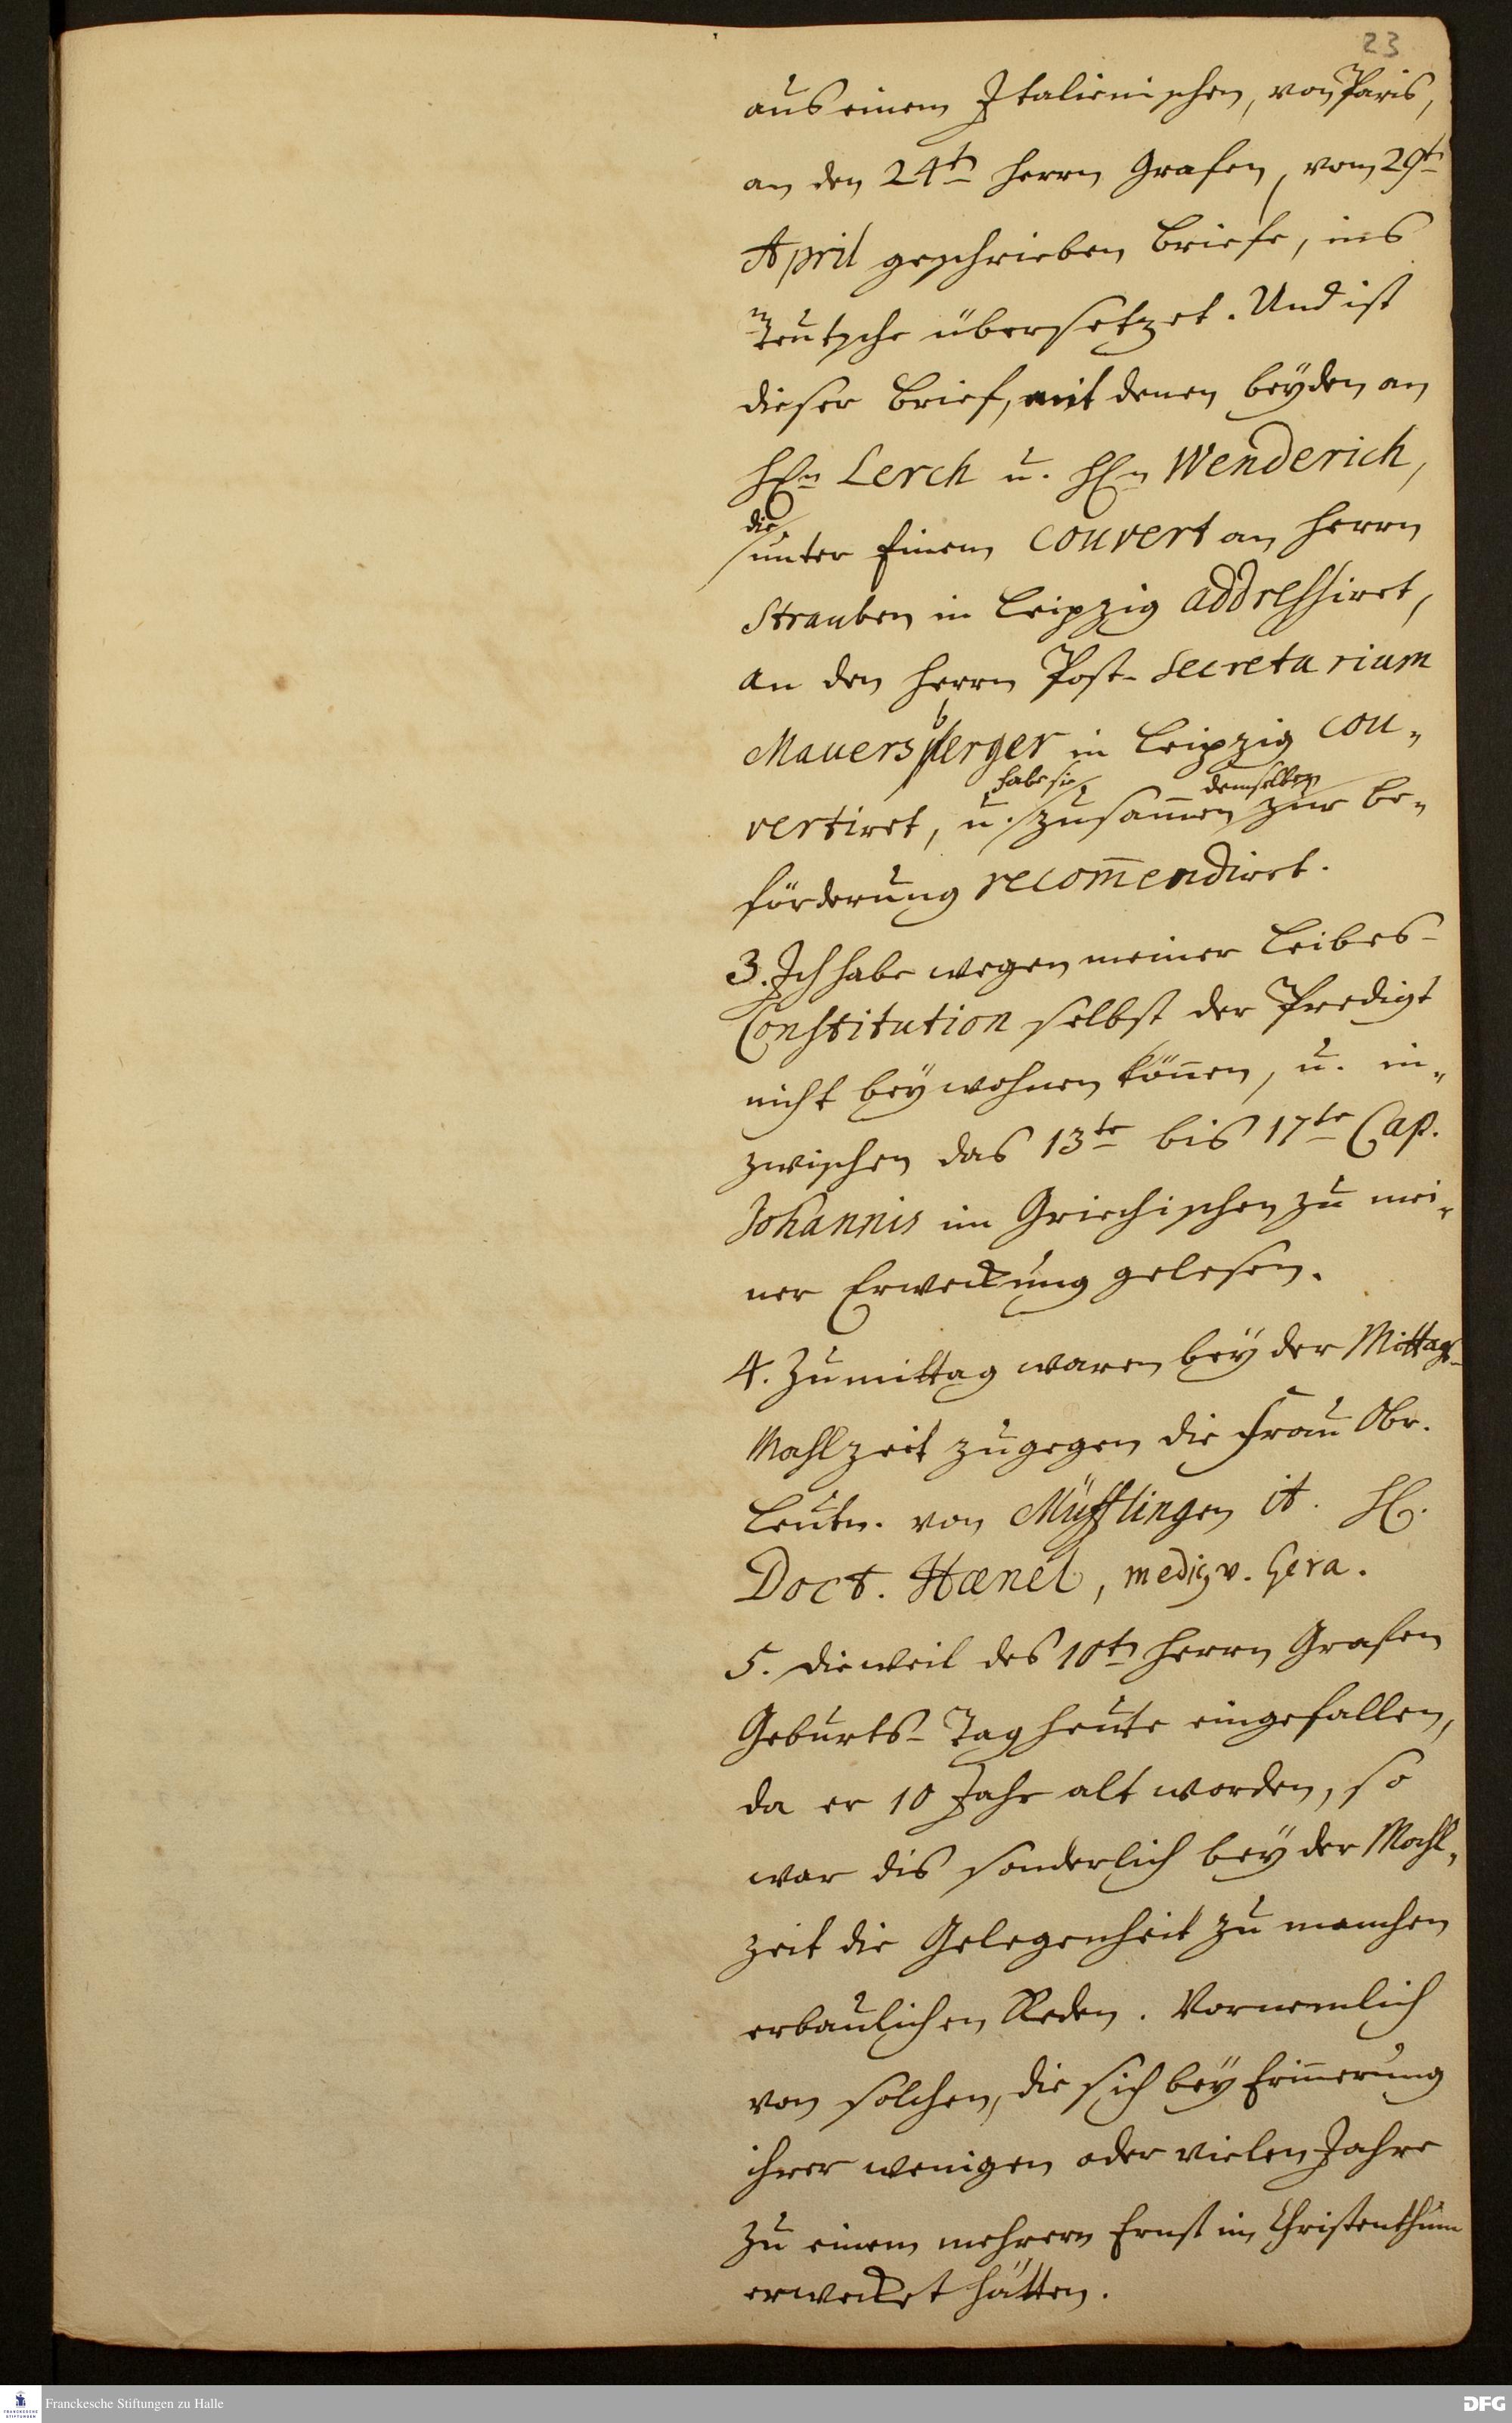 23
aus einem Italienischen, von Paris,
an den 24tn Herrn Grafen, vom 29tn
April geschrieben Briefe, ins
Teutsche übersetzet. Und ist
dieser Brief, mit denen beyden an
HEn Lerch u. HEn Wenderich,
die
unter Einem couvert an Herrn
Strauben in Leipzig addressiret,
an den Herrn Post-Secretarium
Mauersberger in Leipzig cou„
habe sie demselben
vertiret, u. zusam̅en zur Be„
förderung recom̅endiret.
3. Ich habe wegen meiner Leibes-
Constitution selbst der Predigt
nicht beywohnen kön̅en, u. in„
zwischen das 13te bis 17te Cap.
Johannis im Griechischen zu mei„
ner Erweckung gelesen.
4. Zu mittag waren bey der Mittags-
Mahlzeit zugegen die Frau Obr.
Leutn. von Müfflingen it. HE.
Doct. Hænel, medic. v. Gera.
5. Dieweil des 10tn Herrn Grafen
Geburts-Tag heute eingefallen,
da er 10 Jahr alt worden, so
war dis sonderlich bey der Mahl„
zeit die Gelegenheit zu manchen
erbaulichen Reden. Vornemlich
von solchen, die sich bey Erin̅erung
ihrer wenigen oder vielen Jahre
zu einem mehrern Ernst im Christenthum
erwecket hätten.
Franckesche Stiftungen zu Halle
DFG